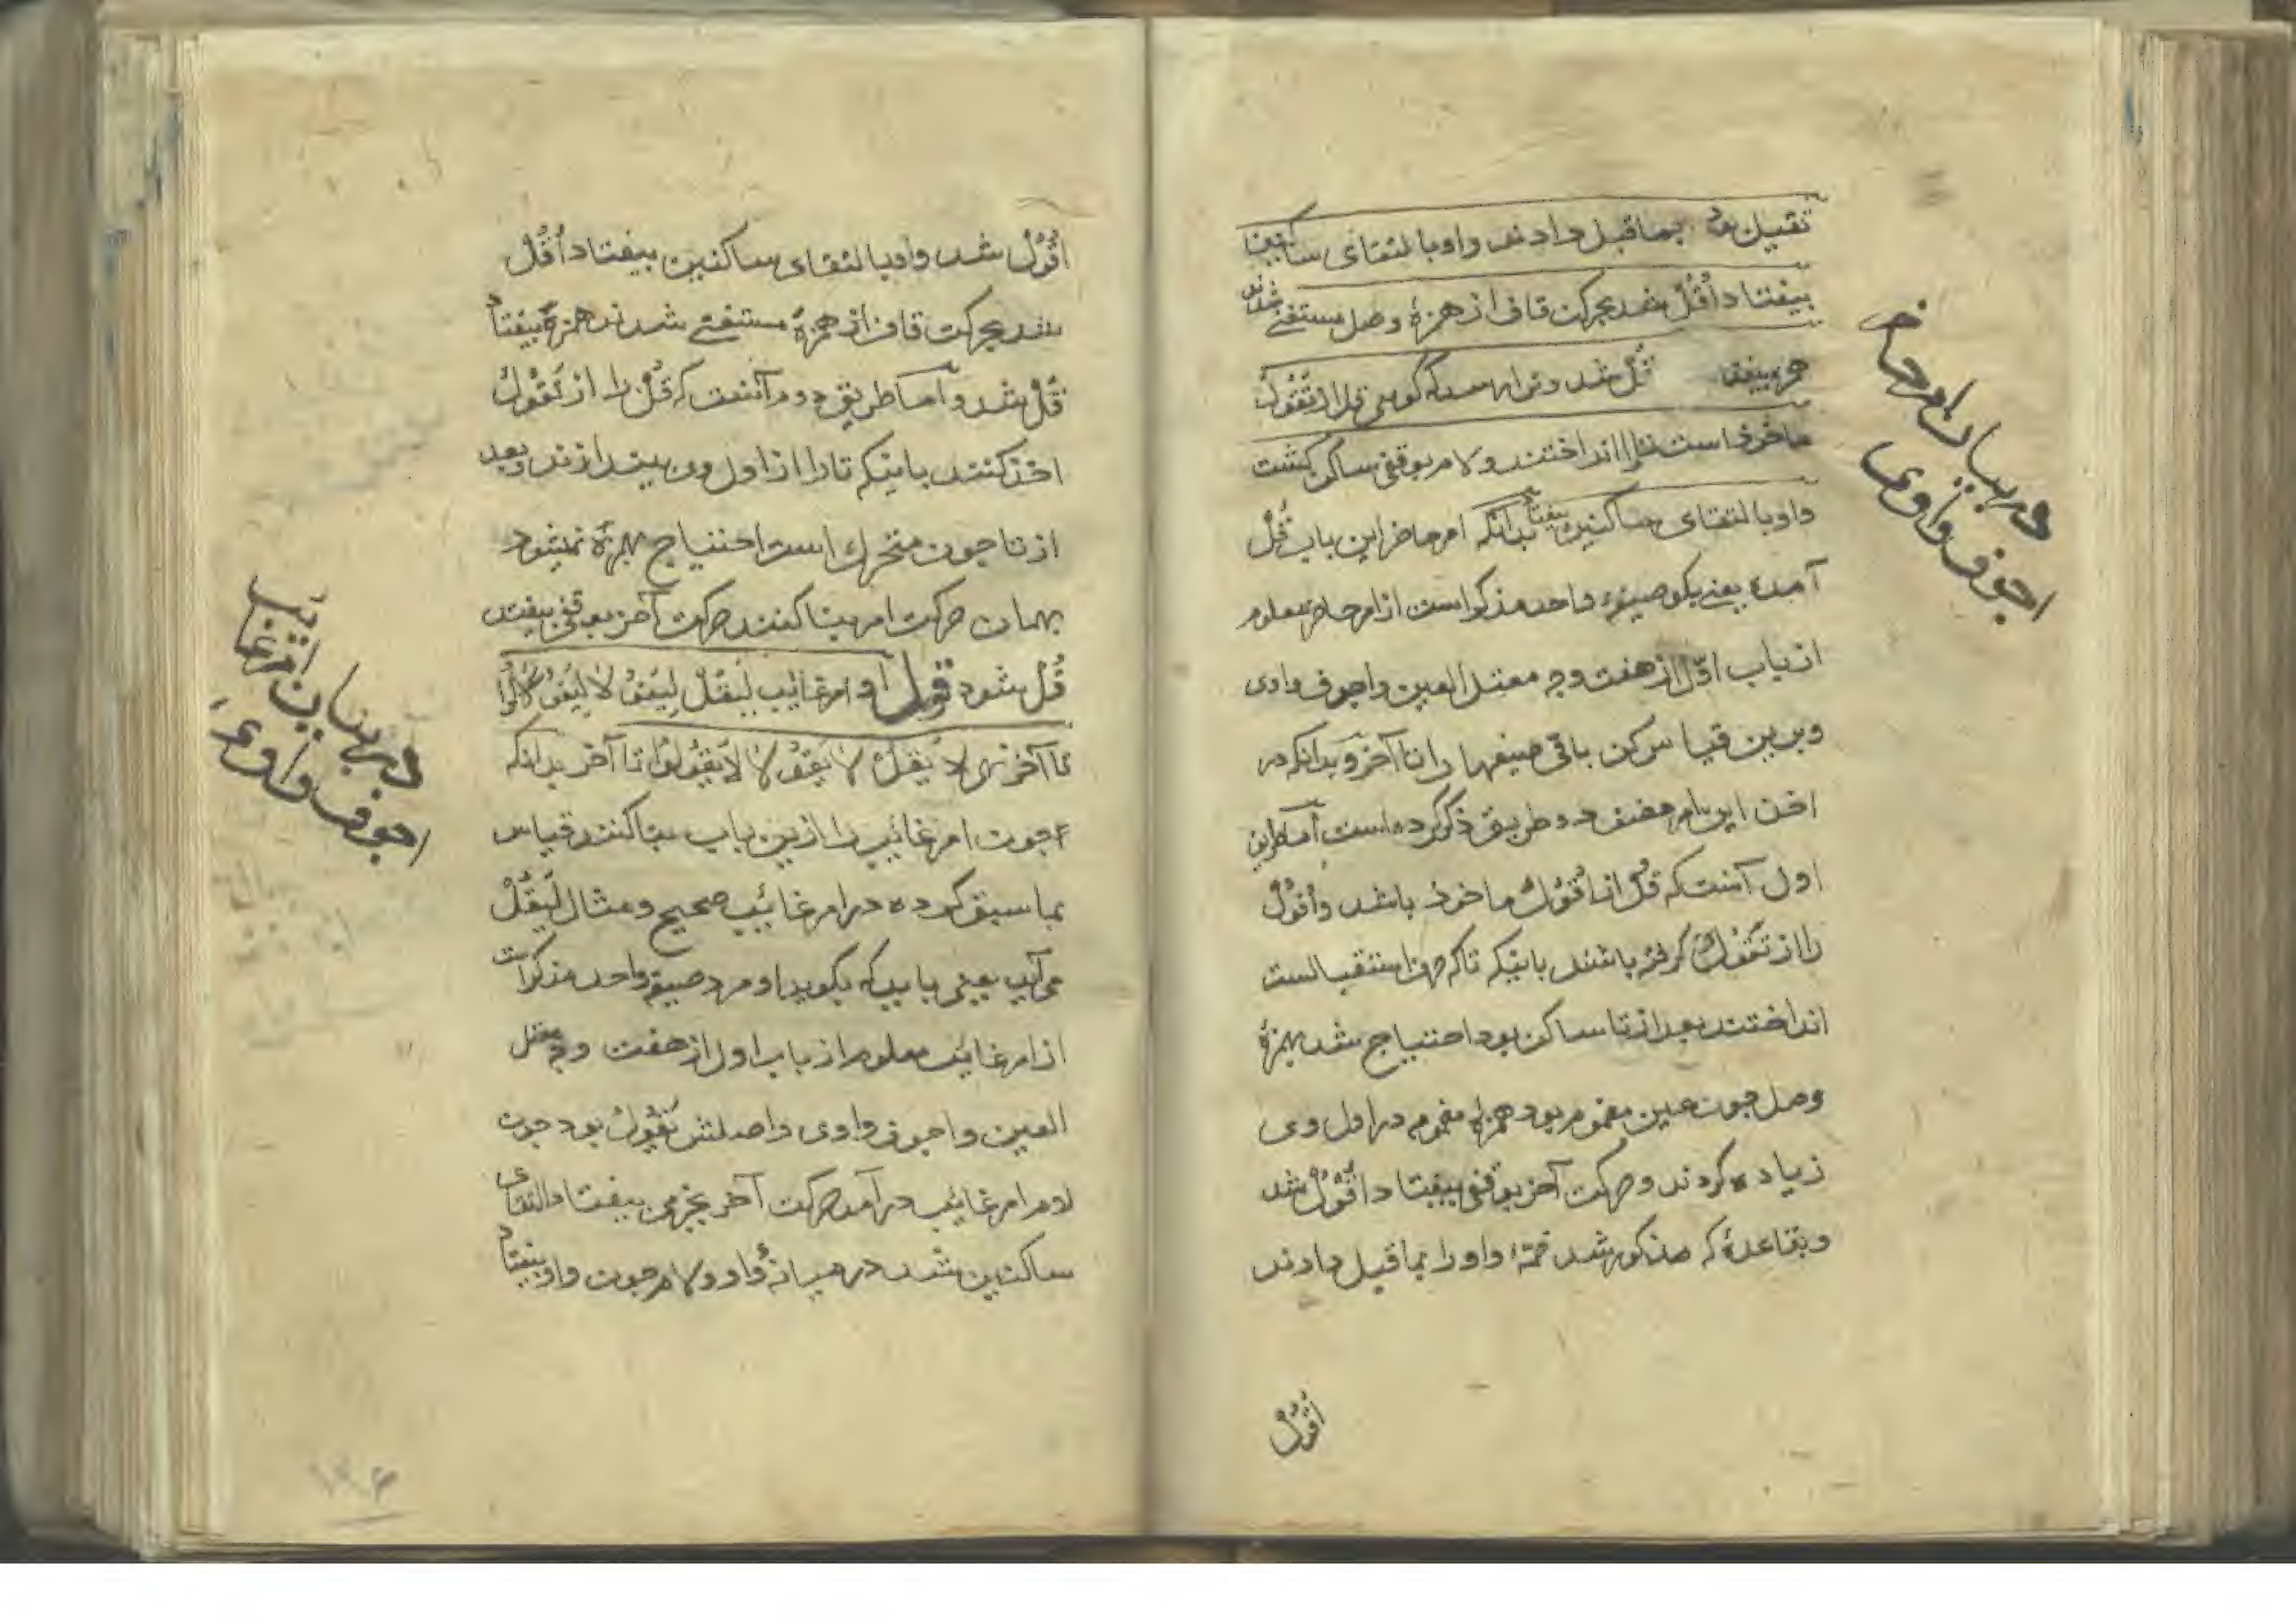 ثقیل بود بماقبل دادند واو بالتقای ساکنین
بیفتاد اُقُلْ شد بحرکت قاف از همزهٔ وصل مستغنی شدند
همزه بیفتاد قُلْ شد و ترا رسد که گویی قل از تَقُوْلُ
ماخوذ است تا را انداختند و لام بوقفی ساکن کشت
واو بالتقای ساکنین بیفتاد بدانکه امر حاضر این باب قُلْ
آمده یعنی بکو صیغهٔ واحد مذکر است از امر حاضر معلوم
از باب اوّل از هفت وجه معتل العین واجوف واوی
و برین قیاس کن باقی صیغها را تا آخر و بدانکه در
اخذ این امر مصنف دو طریق ذکر کرده است اما طریق
اول آنست که قُلْ از اُقْوُلْ ماخوذ باشد و اُقْوُلْ
را از تَقْوُلُ کرفته باشند باینکه تا که حرف استقبالست
انداختند بعد از تا ساکن بود احتیاج شد بهمزهٔ
وصل چون عین مضموم بود همزهٔ مضموم در اول وی
زیاده کردند و حرکت آخر بوقفی بیفتاد اُقْوُلْ شد
و بقاعدهٔ که مذکور شد ضمهٔ واو را بماقبل دادند
اُقُوْلْ
در بیان امر حاضر
اجوف واوی
اُقُوْلْ شد واو بالتقای ساکنین بیفتاد اُقُلْ
شد بحرکت قاف از همزهٔ مستغنی شدند همزه بیفتاد
قُلْ شد و اما طریق دوم آنست که قُلْ را از تَقُوْلُ
اخذ کنند باینکه تا را از اول وی بیندازند و بعد
از تا چون متحرك است احتیاج بهمزهٔ نمیشود
بهمان حرکت امر بنا کنند حرکت آخر بوقفی بیفتد
قُلْ شود قوله او امر غایب لِیَقُلْ لِیَقُوْلَا لِیَقُوْلُوْا
تا آخر نهی لَا یَقُلْ لَا یَقُوْلَا لَا یَقُوْلُوْا تا آخر بدانکه
چون امر غائب را ازین باب بنا کنند قیاس
بما سبق کرده در امر غائب صحیح و مثال لِیَقُلْ
می آید یعنی باید که بکوید او مرد صیغه واحد مذکر است
از امر غایب معلوم از باب اول از هفت وجه معتل
العین واجوف واوی واصلش یَقُوْلُ بود چون
لام امر غایب در آمد حرکت آخر بجزمی بیفتاد التقای
ساکنین شد در میانهٔ واو و لام چون واو بیفتاد
در بیان امر غایب
اجوف واوی